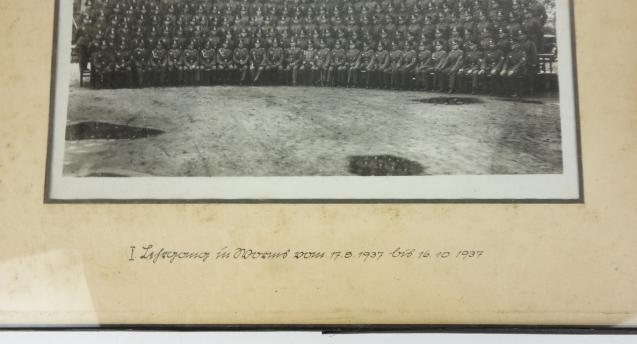 I. Lehrgang in Worms vom 17.8.1937 bis 16.10.1937